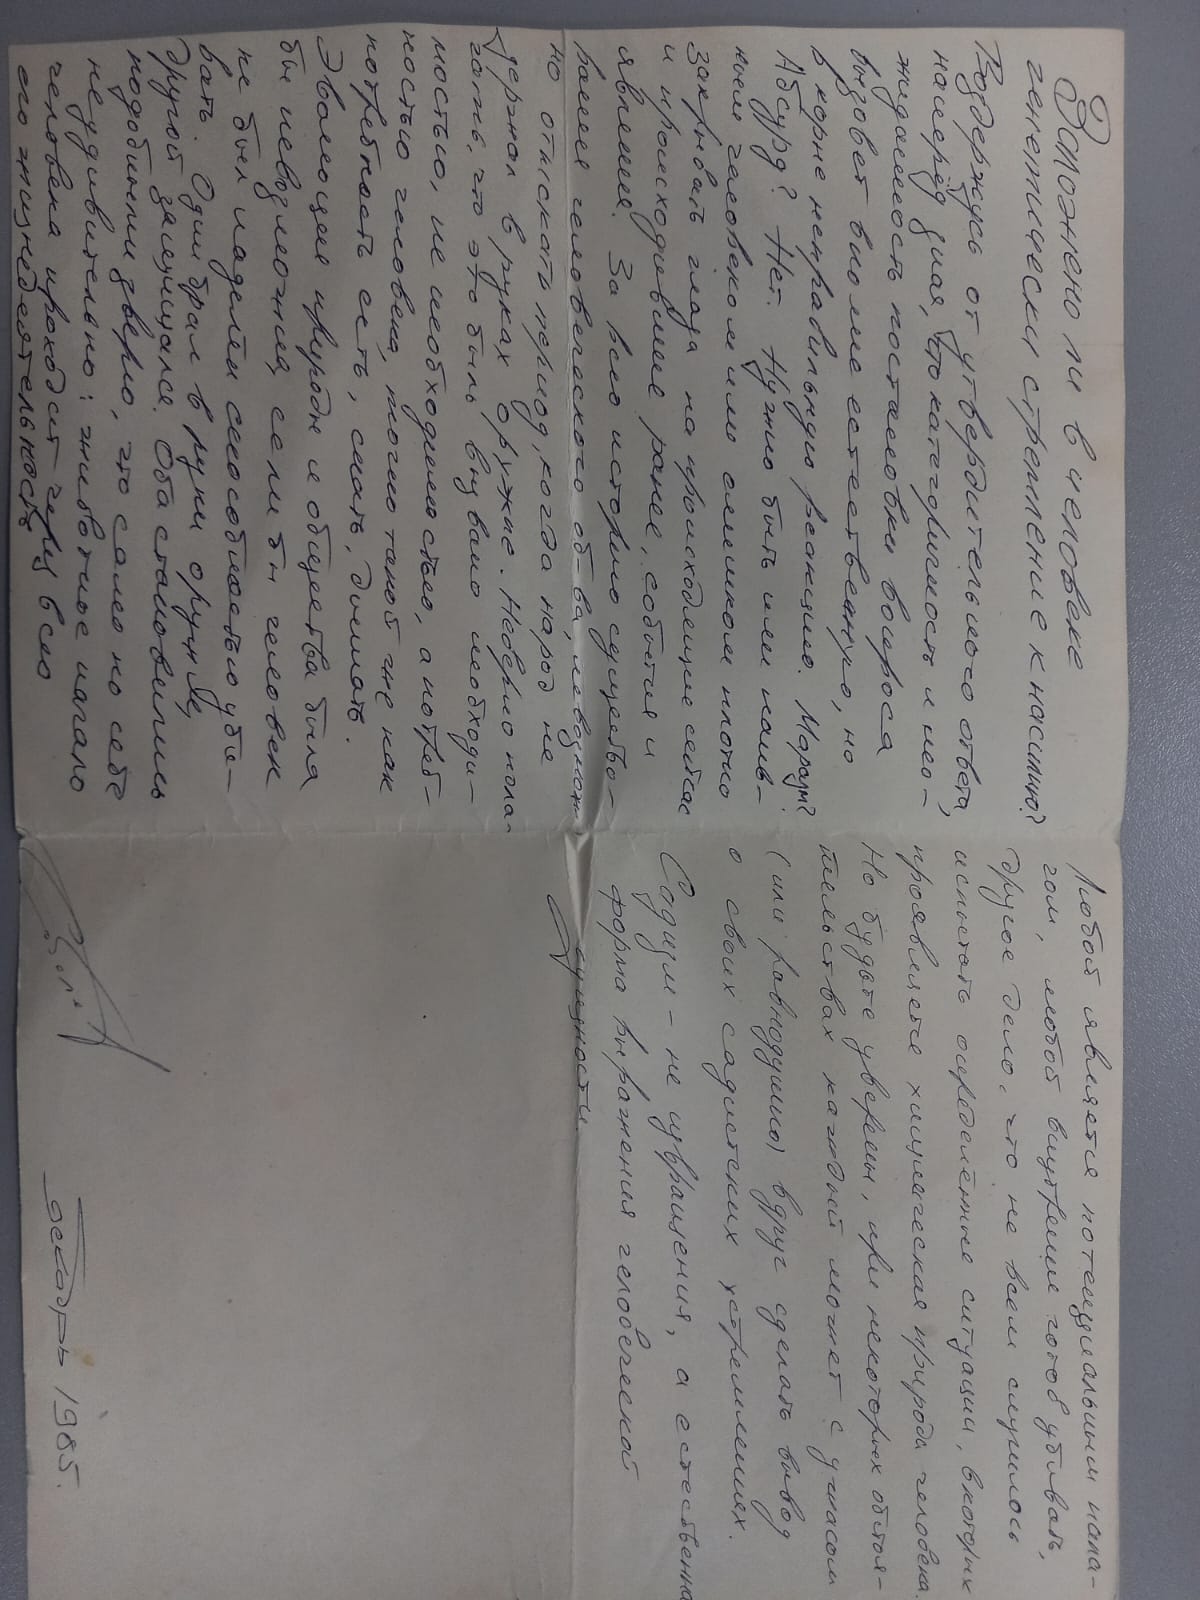 Заложено ли в человеке
генетически стремление к насилию?
Воздержусь от утвердительного ответа,
наперёд зная, что категоричность и нео-
жиданность постановки вопроса
вызовет вполне естественную, но
в корне неправильную реакцию. Маразм?
Абсурд? Нет. Нужно быть или наив-
ным человеком или слишком плотно
закрывать глаза на происходящие сейчас
и происходившие ранее события и
явления. За всю историю существо-
вания человеческого об-ва, невозмож-
но отыскать период, когда народ не
держал в руках оружие. Неверно пола-
гать, что это было вызвано необходи-
мостью, не необходимостью, а потреб-
ностью человека, точно такой же как
потребность есть, спать, думать.
Эволюция природы и общества была
бы невозможна, если бы человек
не был наделён способностью уби-
вать. Один брал в руки оружие,
другой защищался. Оба становились
подобными зверю, что само по себе
неудивительно: животные начало
человека проходит через всю
его жизнедеятельность
Любой является потенциальным пала-
чом, любой внутренне готов убивать,
другое дело, что не всем случилось
испытать определённые ситуации, в которых
проявляется хищническая природа человека.
Но будьте уверены, при некоторых обстоя-
тельствах каждый может с ужасом
(или равнодушно) вдруг сделать вывод
о своих садистских устремлениях.
Садизм - не извращения, а естественная
форма выражения человеческой
сущности.
декабрь 1985.